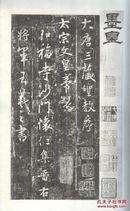 墨皇
大唐三藏聖教序
太宗文皇帝製
弘福寺沙門懷仁集晉右
將軍王羲之書